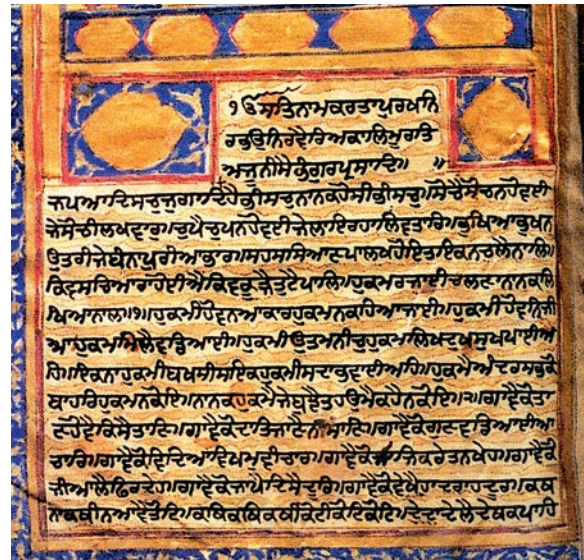 ੴਸਤਿਨਾਮੁਕਰਤਾਪੁਰਖਨਿ
ਰਭਉਨਿਰਵੈਰਿਅਕਾਲਿਮੂਰਤਿ
ਅਜੂਨੀਸੈਭੰਗੁਰਪ੍ਰਸਾਦਿ॥ ॥
ਜਪਆਦਿਸਚੁਜੁਗਾਦਿਹੈਭੀਸਚੁਨਾਨਕਹੋਸੀਭੀਸਚੁ॥ਸੋਚੈਸੋਚਨਹੋਵਈ
ਜੇਸੋਚੀਲਖਵਾਰ॥ਚੁਪੈਚੁਪਨਹੋਵਈਜੇਲਾਇਰਹਾਲਿਵਤਾਰ॥ਭੁਖਿਆਭੁਖਨ
ਉਤਰੀਜੇਬੰਨਾਪੁਰੀਆਭਾਰ॥ਸਹਸਸਿਆਣਪਾਲਖਹੋਇਤਇਕਨਚਲੈਨਾਲਿ॥
ਕਿਵਸਚਿਆਰਾਹੋਈਐਕਿਵਕੂੜੈਤੁਟੈਪਾਲਿ॥ਹੁਕਮਰਜਾਈਚਲਣਾਨਾਨਕਲਿ
ਖਿਆਨਾਲ॥੧॥ਹੁਕਮੀਹੋਵਨਆਕਾਰਹੁਕਮਨਕਹਿਆਜਾਈ॥ਹੁਕਮੀਹੋਵਨਿਜੀ
ਆਹੁਕਮਮਿਲੈਵਡਿਆਈ॥ਹੁਕਮੀਉਤਮਨੀਚੁਹੁਕਮਲਿਖਦੁਖਸੁਖਪਾਈਅ
ਹਿ॥ਇਕਨਾਹੁਕਮੀਬਖਸੀਸਇਕਹੁਕਮੀਸਦਾਭੁਵਾਈਅਹਿ॥ਹੁਕਮੈਅੰਦਰਸਭਕੋ
ਬਾਹਰਿਹੁਕਮਨਕੋਇ॥ਨਾਨਕਹੁਕਮੈਜੇਬੁਝੈਤਹਉਮੈਕਹੈਨਕੋਇ॥੨॥ਗਾਵੈਕੋਤਾ
ਣਹੋਵੈਕਿਸੈਤਾਣਿ॥ਗਾਵੈਕੋਦਾਤਿਜਾਣੈਨੀਸਾਣਿ॥ਗਾਵੈਕੋਗੁਣਵਡਿਆਈਆ
ਚਾਰ॥ਗਾਵੈਕੋਵਿਦਿਆਵਿਖਮੁਵੀਚਾਰ॥ਗਾਵੈਕੋਸਾਜਿਕਰੇਤਨਖੇਹ॥ਗਾਵੈਕੋ
ਜੀਆਲੈਫਿਰਦੇਹ॥ਗਾਵੈਕੋਜਾਪੈਦਿਸੈਦੂਰਿ॥ਗਾਵੈਕੋਵੇਖੈਹਾਦਰਾਹਦੂਰ॥ਕਥ
ਨਾਕਥੀਨਆਵੈਤੋਟਿ॥ਕਥਿਕਥਿਕਥੀਕੋਟੀਕੋਟਿਕੋਟਿ॥ਦੇਦਾਦੇਲੈਦੇਥਕਪਾਹਿ